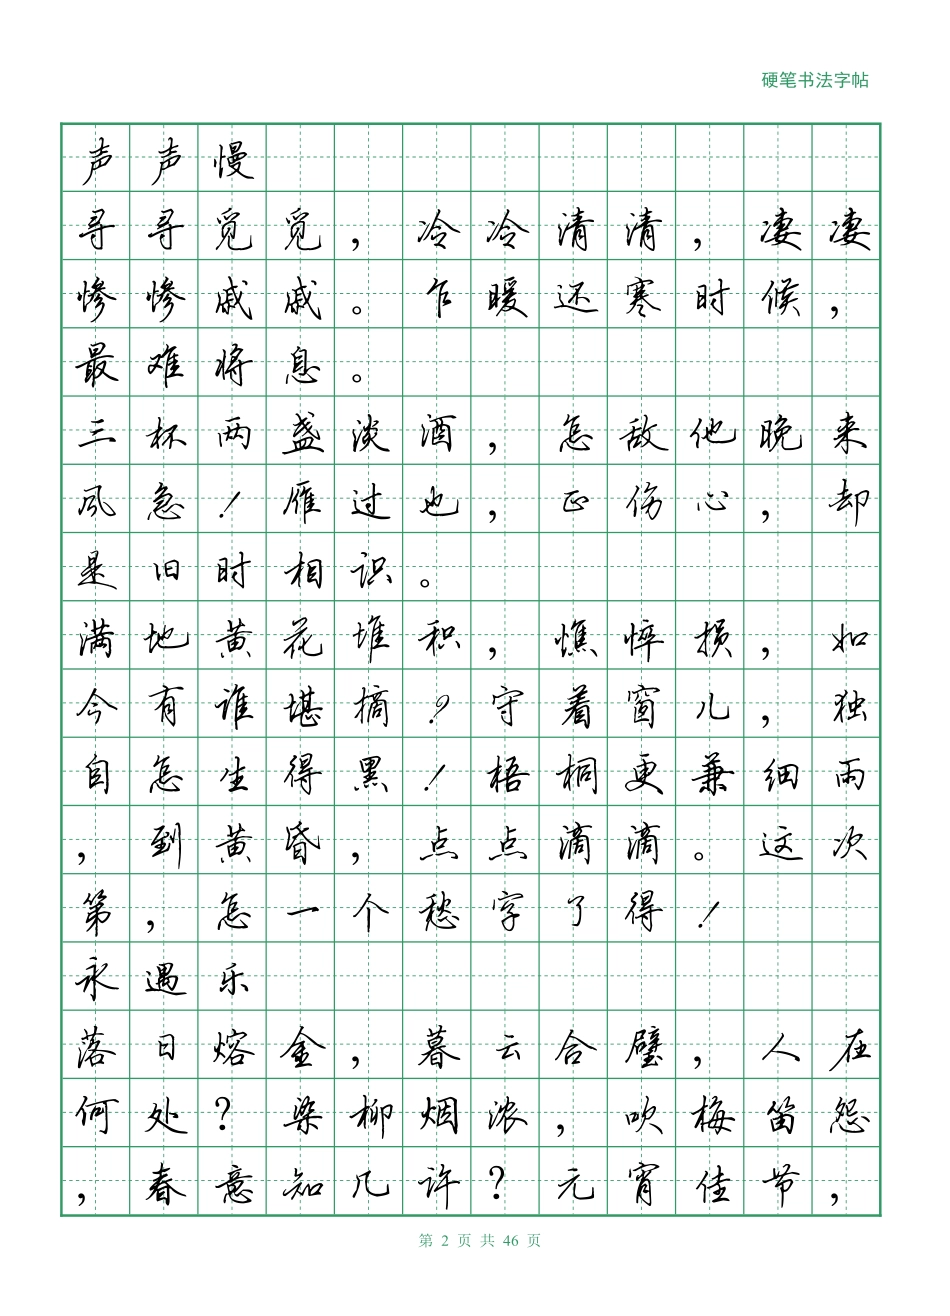 硬笔书法字帖
声声慢
寻寻觅觅，冷冷清清，凄凄
惨惨戚戚。乍暖还寒时候，
最难将息。
三杯两盏淡酒，怎敌他晚来
风急！雁过也，正伤心，却
是旧时相识。
满地黄花堆积，憔悴损，如
今有谁堪摘？守着窗儿，独
自怎生得黑！梧桐更兼细雨
，到黄昏，点点滴滴。这次
第，怎一个愁字了得！
永遇乐
落日熔金，暮云合璧，人在
何处？染柳烟浓，吹梅笛怨
，春意知几许？元宵佳节，
第 2 页 共 46 页